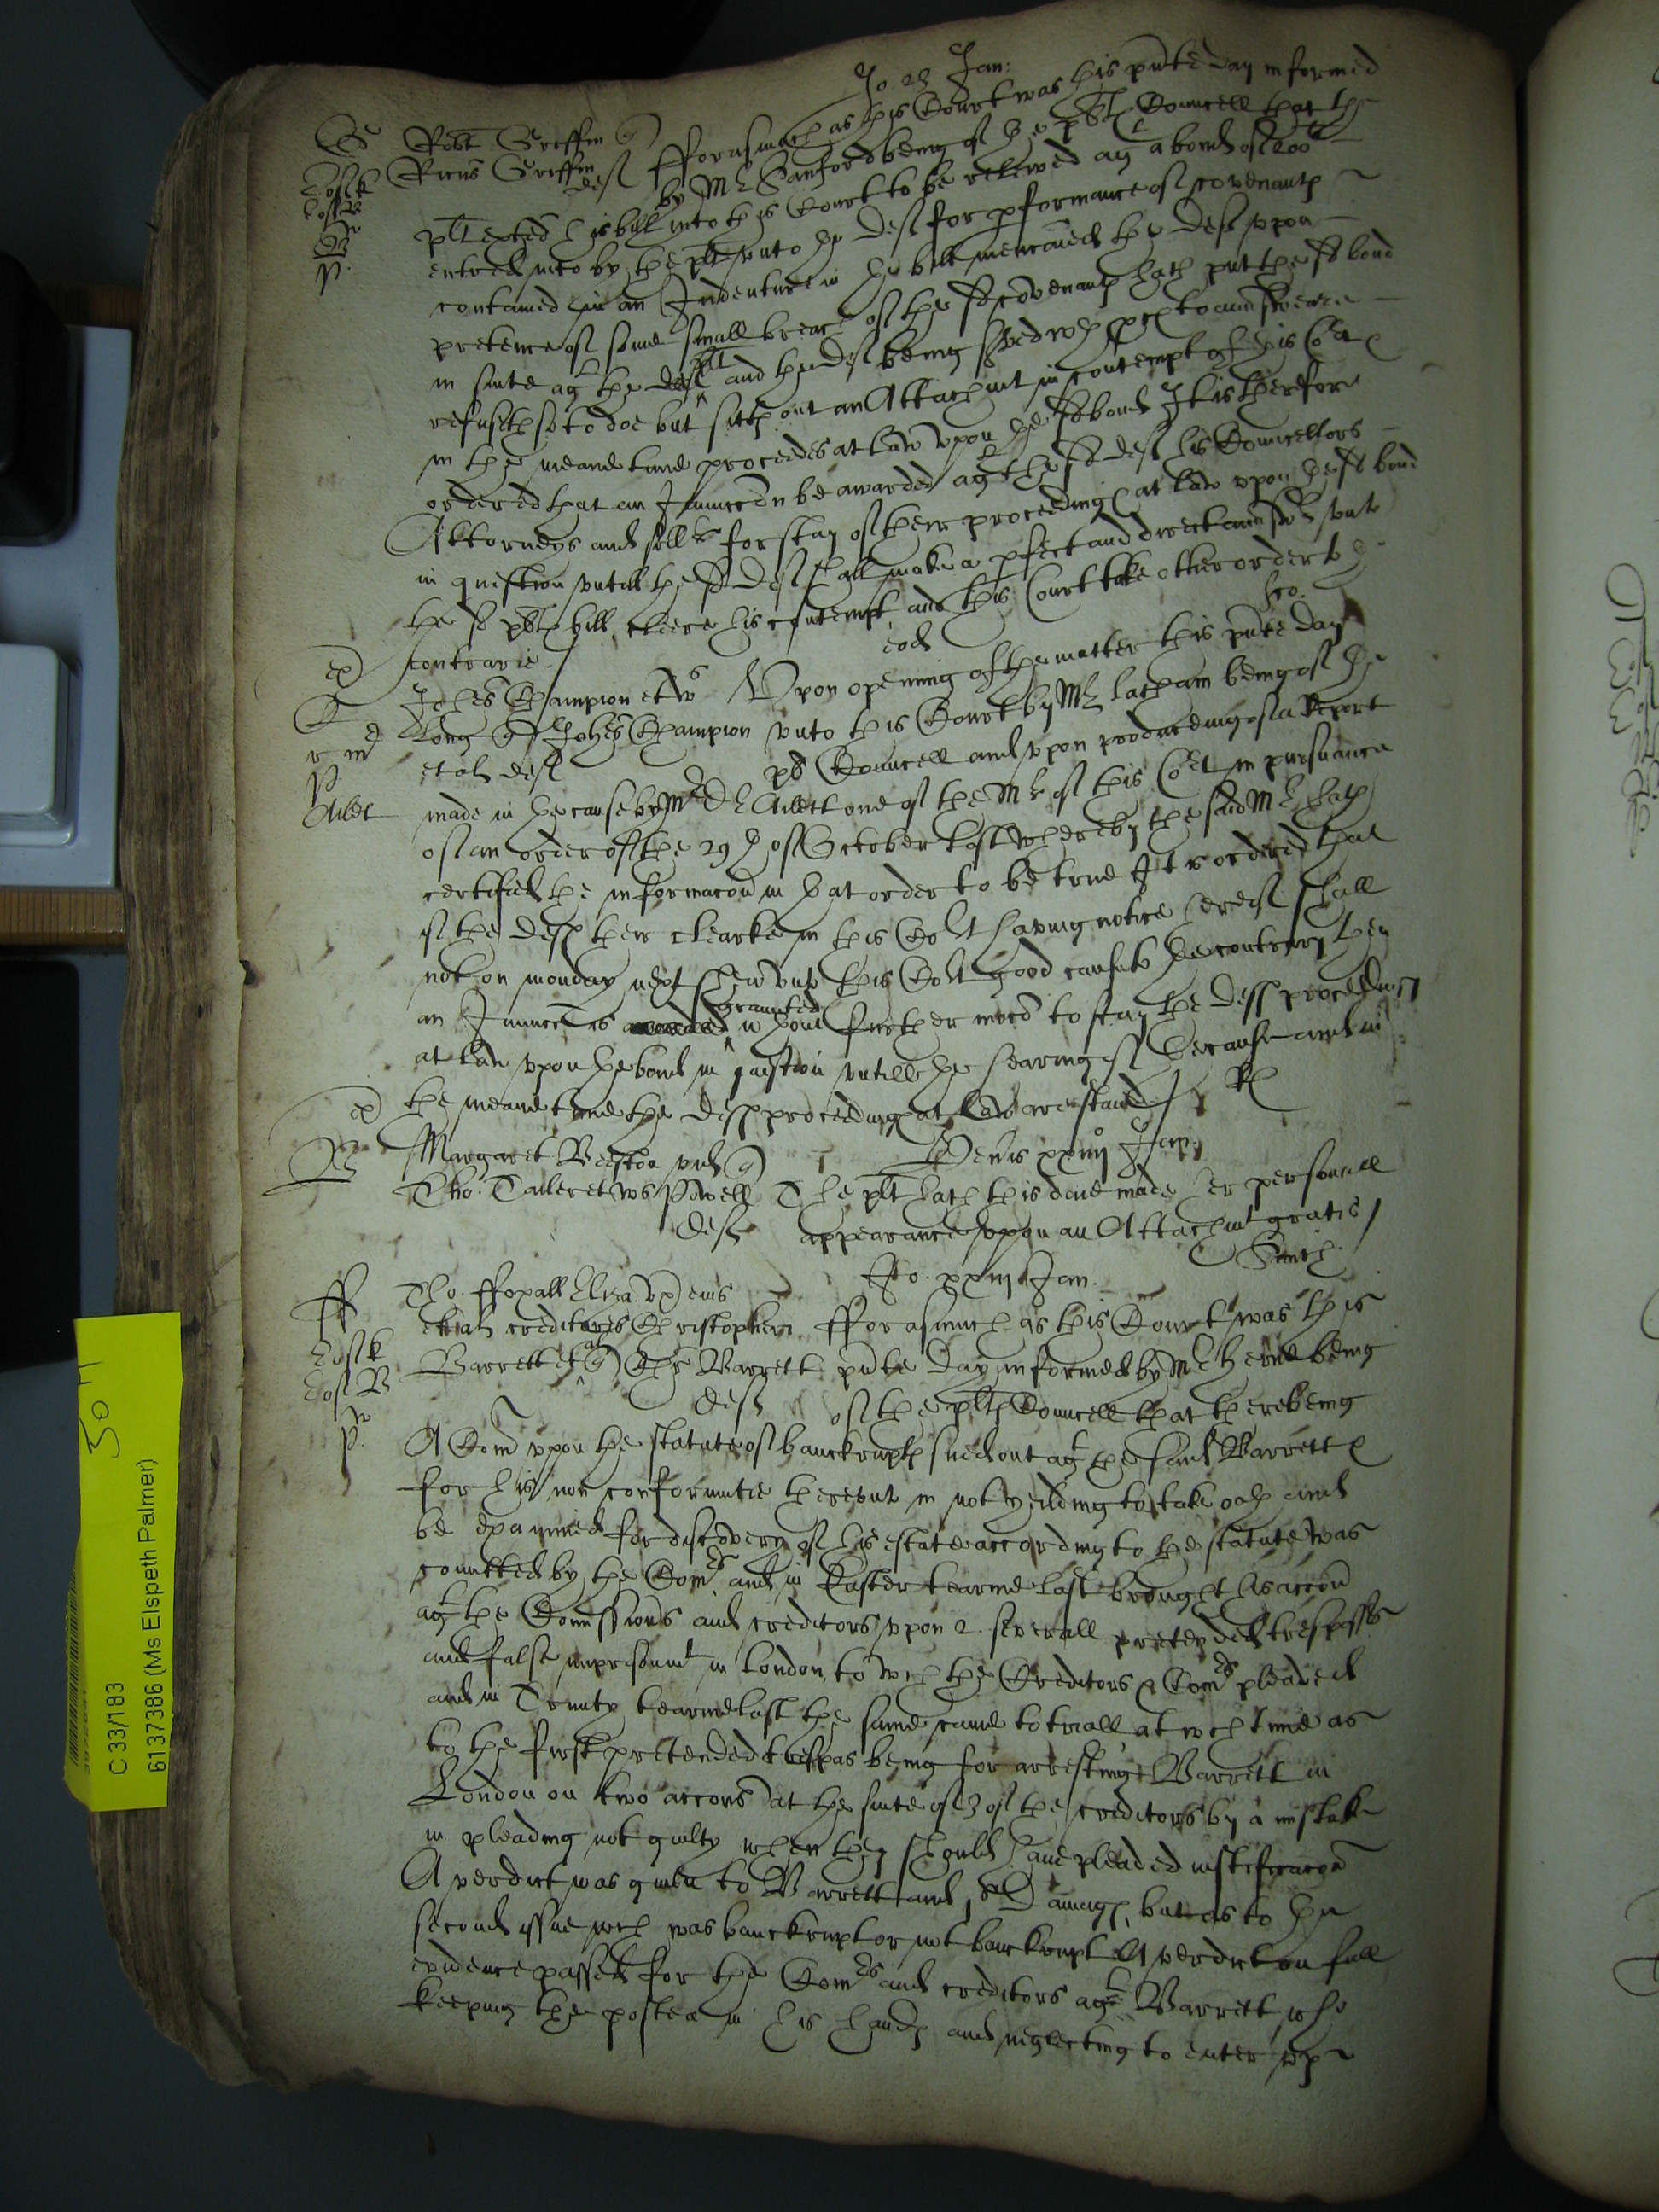 Jo 23 Jan:
Robt Greffin q)
Ricus Greffin
def
fforasmuch as this Court was this pnte day informed
by Mr Sanford being of the plts Councell that the
plt exted his bill into this Court to be releived agt a bond of 200li
entred into by the plt vnto the def for pformance of covenants
contained in an Indenture in the bill menconed the def vpon
pretence of some small breach of the sd covenants hath put the sd bond
in suite agt the plt and the def being sved wth pces to answeare
refuseth so to doe but sitts out an Attachmt in contempt of this Cort
in the meane tyme proceedes at law vpon the sd bond It is therefore
ordered that an Iniunccon be awarded agt the sd def his Councellors
Attorneys and sollrs for stay of their proceedings at law vpon the sd bond
in question vntill the sd def shall make a pfect and direct answere vnto
the sd plts bill, cleere his contempt and this Court take other order to the
contrarie /
eod
Johes Champion et
Johes Champion
et al def
Vpon opening of the matter this pnte day
vnto this Court by Mr Latham being of the
plts Councell and vpon producing of a Report
made in the cause by Mr Dr Aylett one of the Mrs of this Cort in pursuance
of an order of the 29th of October last whereby the said Mr hath
certified the informacon in that order to be true It is ordered that
if the defts their clearke in this Cort having notice hereof shall
not on monday next shew vnto this Cort good cause to the contrary then
an Iniuncc is granted without further mocon to stay the defts proceedings
at law vpon the bond in question vntill the hearing of the cause and in
the meane tyme the defts proceedings at law are stayed /
Margaret Beeston vid q)
Tho: Tailer et vx Powell
def
Venis xxiiij Jan:
The plt hath this daie made her personall
appearance vpon an Attachmt gratis /
Jo. xxiij Jan.
Tho. ffoxall Eliza
et al creditors Christopheri
Barrett et al q) Chr Barrett
def
fforasmuch as this Court was this
pnte day informed by Mr Herne being
of the plts Councell that there being
A Comn vpon the statute of banckrupts sued out agt the said Barrett
for his non conformitie therevnto in not yeilding to take oath and
be examined for discovery of his estate according to the statute was
comitted by the Comrs and in Easter tearme last brought his accon
agt the Comissionrs and creditors vpon 2. severall pretended trespasses
and false imprisonmt in London to wch the Creditors & Comrs pleaded
and in Trinity tearme last the same came to triall at wch time as
to the first pretended trespas being for arresting Barrett in
London on two accons at the suite of 3 of the creditors by a mistake
in pleading not guilty when they should have pleaded iustificacon
A verdict was given to Barrett and damages, but as to the
second issue wch was banckrupt or not banckrupt A verdict on full
evidence passed for the Comrs and creditors agt Barrett, who
keeping the postea in his hands and neglecting to enter vp
C 33/183
6137386 (Ms Elspeth Palmer)